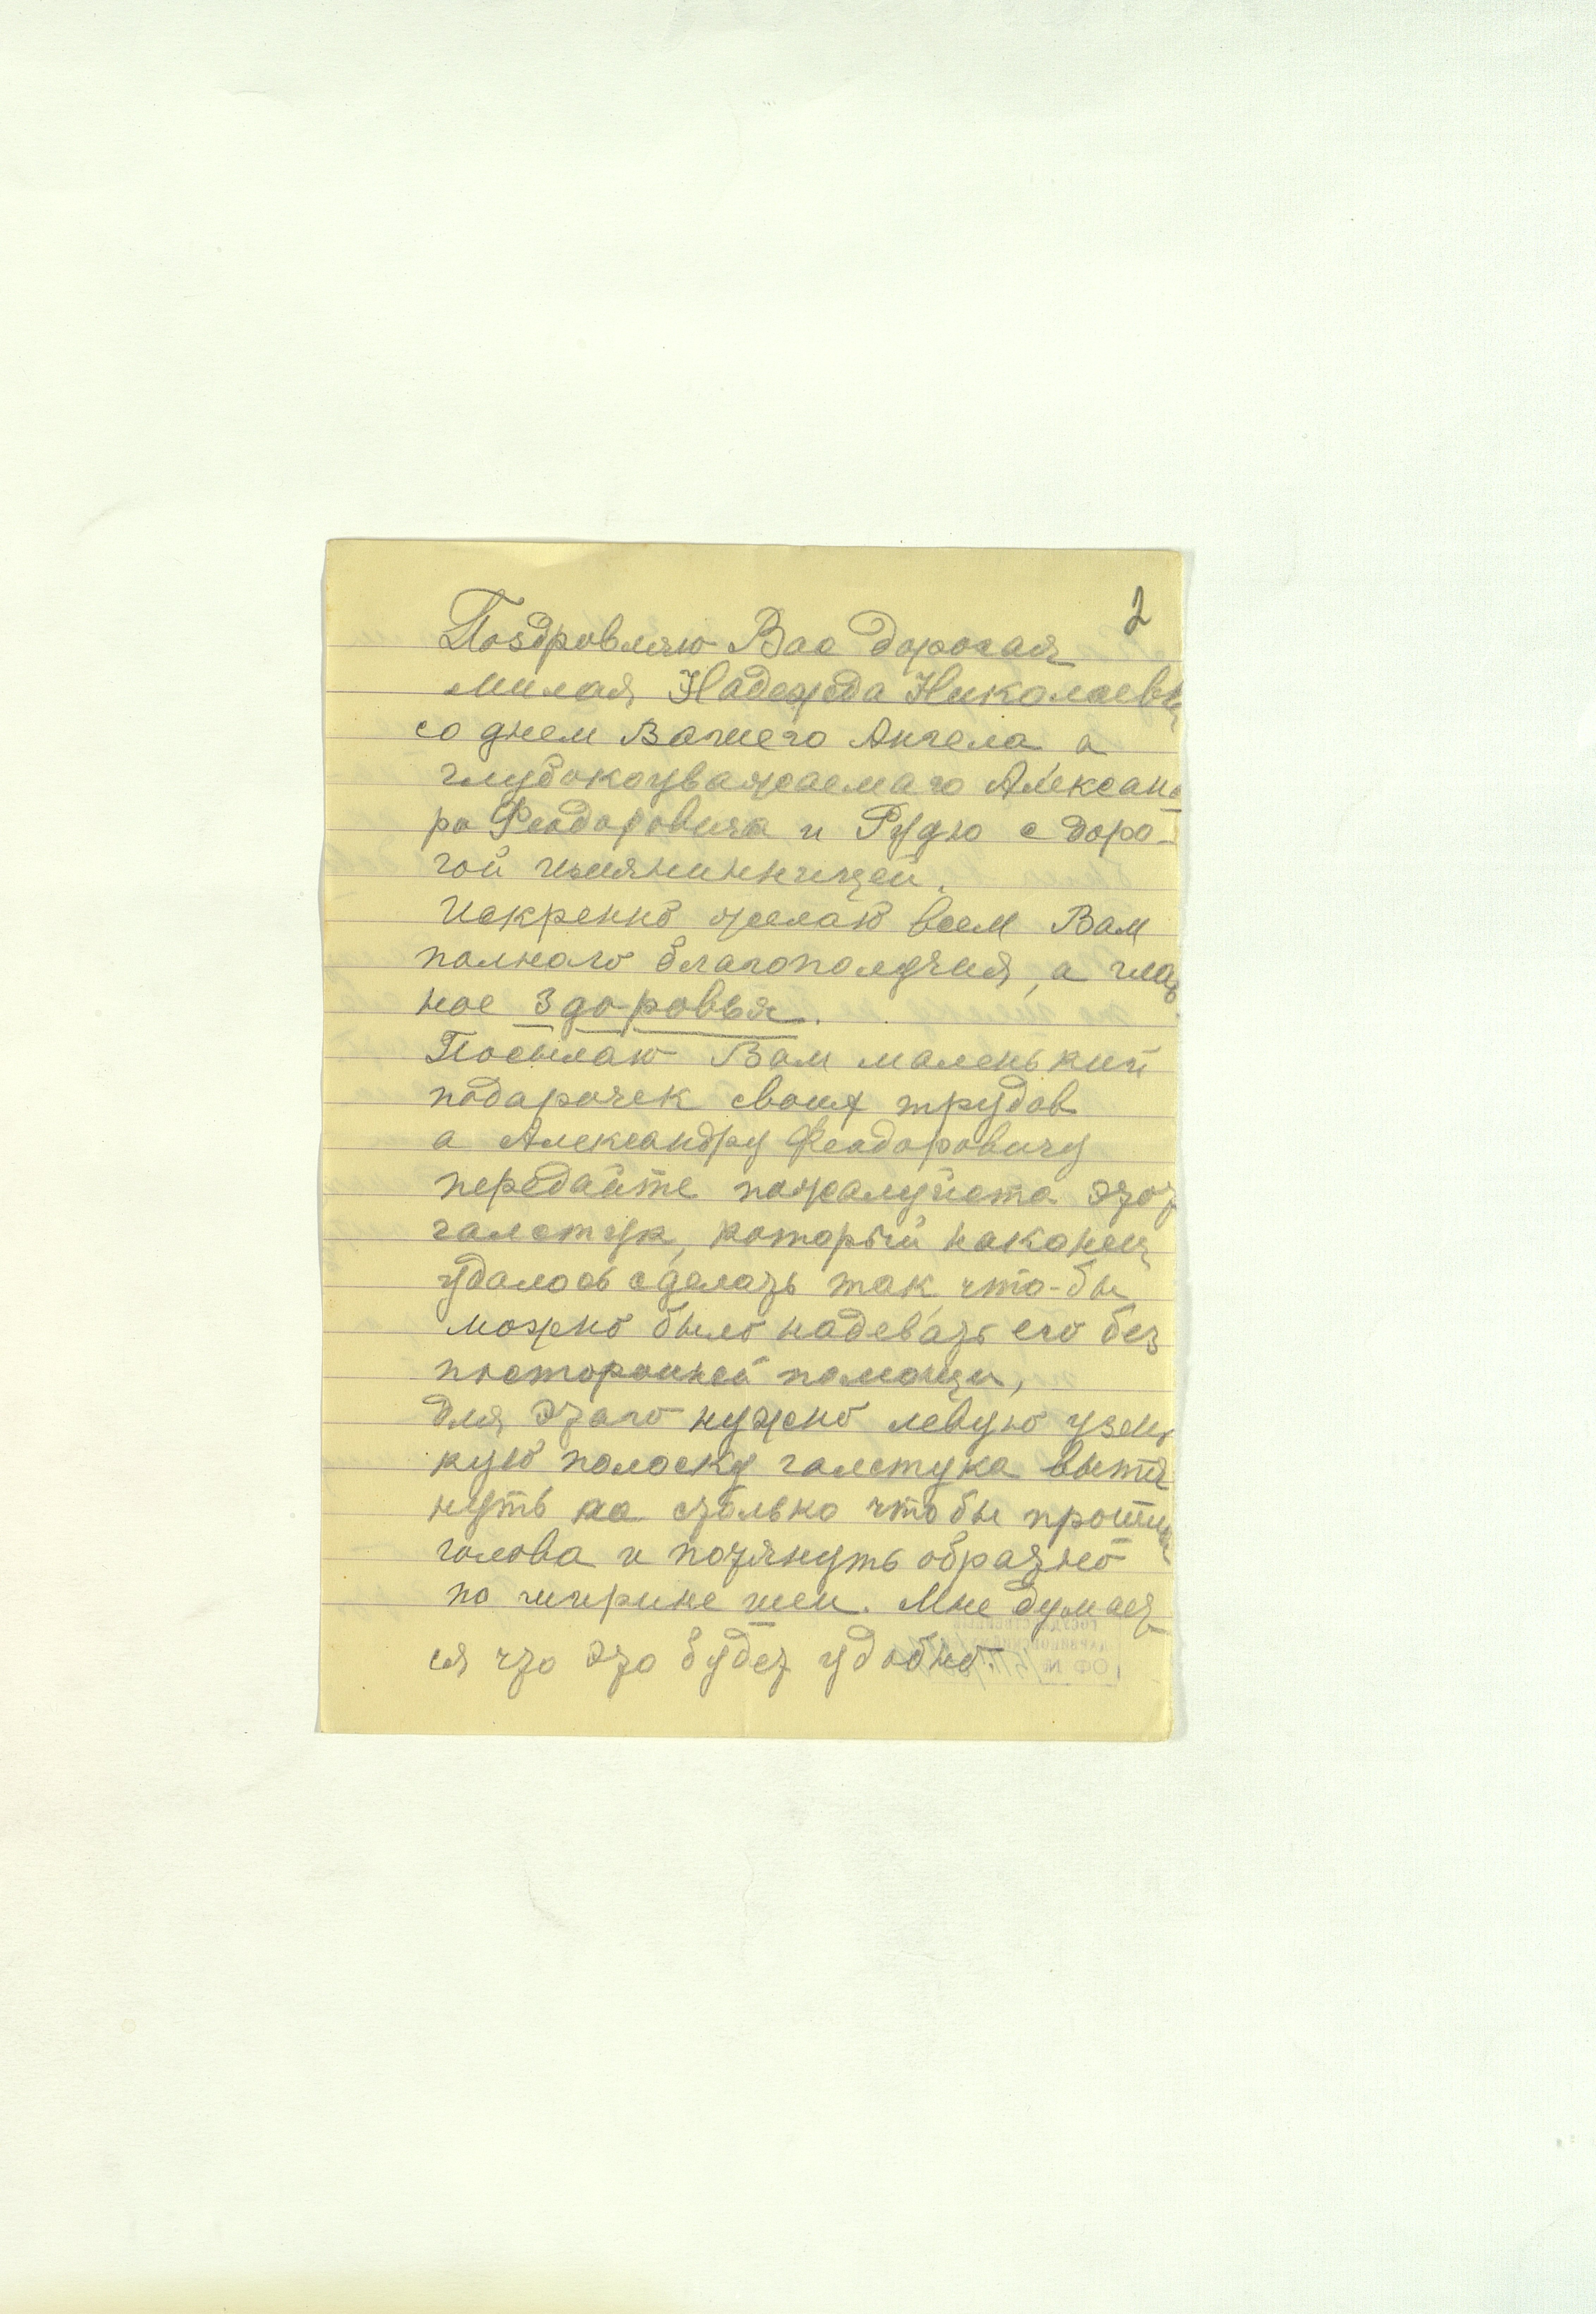 2
Поздровляю Вас дорогая
милая Надежда Николаевн
со днем Вашего Ангела а
глубокоуважаемаго Алексан
ра Феодоровича и Рудю с доро-
гой имянинницей.
Искренно желаю всем Вам
полнаго благополучия, а глав
ное здоровья.
Посылаю Вам маленький
подарочек своих трудов
а Александру Феодоровичу
передайте пожалуйста этот
галстук, который наконец
удалось сделать так что-бы
можно было надевать его без
посторонней помощи,
для этаго нужно левую узень
кую полоску галстука вытя
нуть на столько что бы прошла
голова и потянуть обратно
по ширине шеи. Мне думает-
ся что это будет удобно.